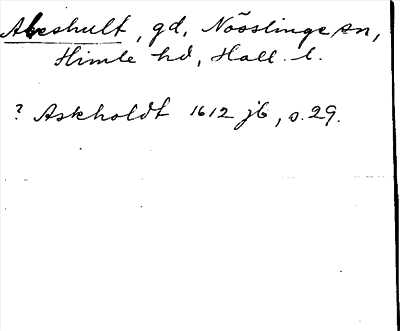 Abeshult, gd, Nösslinge sn,
Himle hd, Hall. l.
? Askholdt 1612 jb, s. 29.